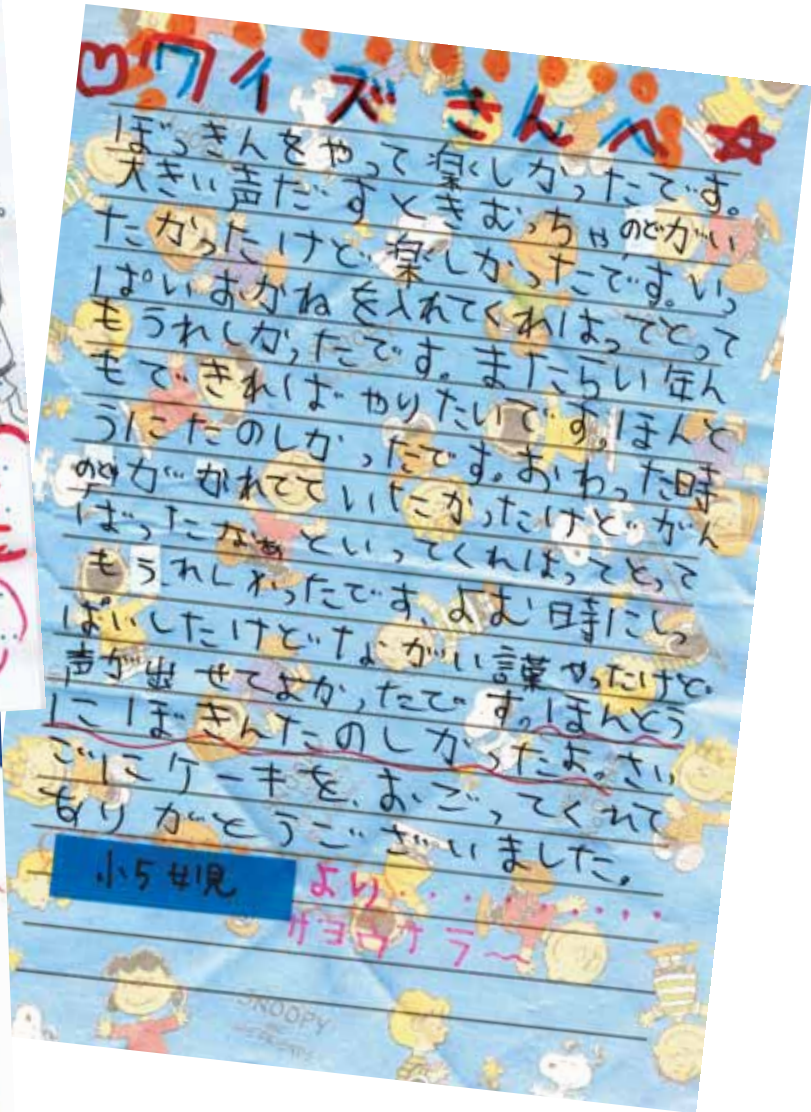 ワイズさんへ☆
ぼっきんをやって楽しかったです。
大きい声だすときむっちゃのどがい
たかったけど楽しかったです。いっ
ぱいおかねを入れてくれはってとって
もうれしかったです。またらい年ん
もできればやりたいです。ほんと
うにたのしかったです。おわった時
のどがかれてていたかったけどがん
ばったなぁといってくれはってとって
もうれしかったです、よむ時にしっ
ぱいしたけどながい言葉やったけど
声が出せてよかったです。ほんとう
にぼきんたのしかったよ。さい
ごにケーキを、おごってくれて
ありがとうございました。
小5女児 より・・・・・・・・・
サヨウナラ〜
SNOOPY